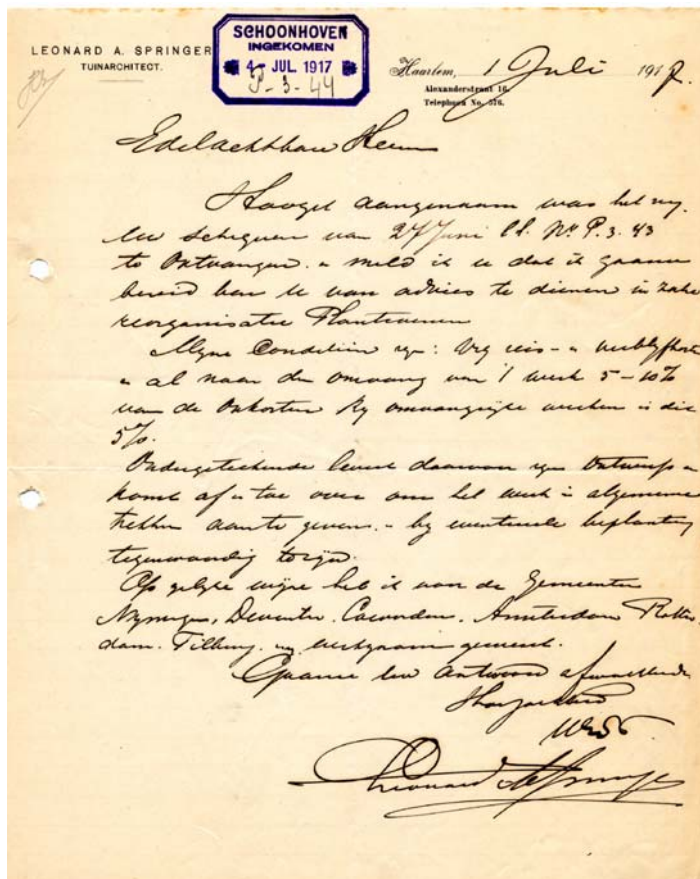 LEONARD A. SPRINGER
TUINARCHITECT.
SCHOONHOVEN
INGEKOMEN
4 - JUL 1917
P-3-44
Haarlem, 1 Juli 1917.
Alexanderstraat 16.
Telephoon No. 576.
Edelachtbare Heeren
Hoogst aangenaam was het my,
uw schryven van 27 Juni ll. No P.3.43
te ontvangen. en meld ik u dat ik gaarne
bereid ben u van advies te dienen in zake
reorganisatie Plantsoenen
Myne Condities zyn: Vry reis- en verblyfkosten
en al naar den omvang van 't werk 5-10%
van de onkosten By omvangryke werken is dit
5%.
Ondergeteekende levert daarvan zyn Ontwerp en
komt af en toe over om het werk in algemeene
trekken aan te geven. en by eventueele beplanting
tegenwoordig te zyn.
Op gelyke wyze heb ik aan de Gemeenten
Nymegen, Deventer, Coevorden, Amsterdam Rotter
dam. Tilburg. werkzaam geweest.
Gaarne uw Antwoord afwachtende
Hoogachtend
Leonard A Springer